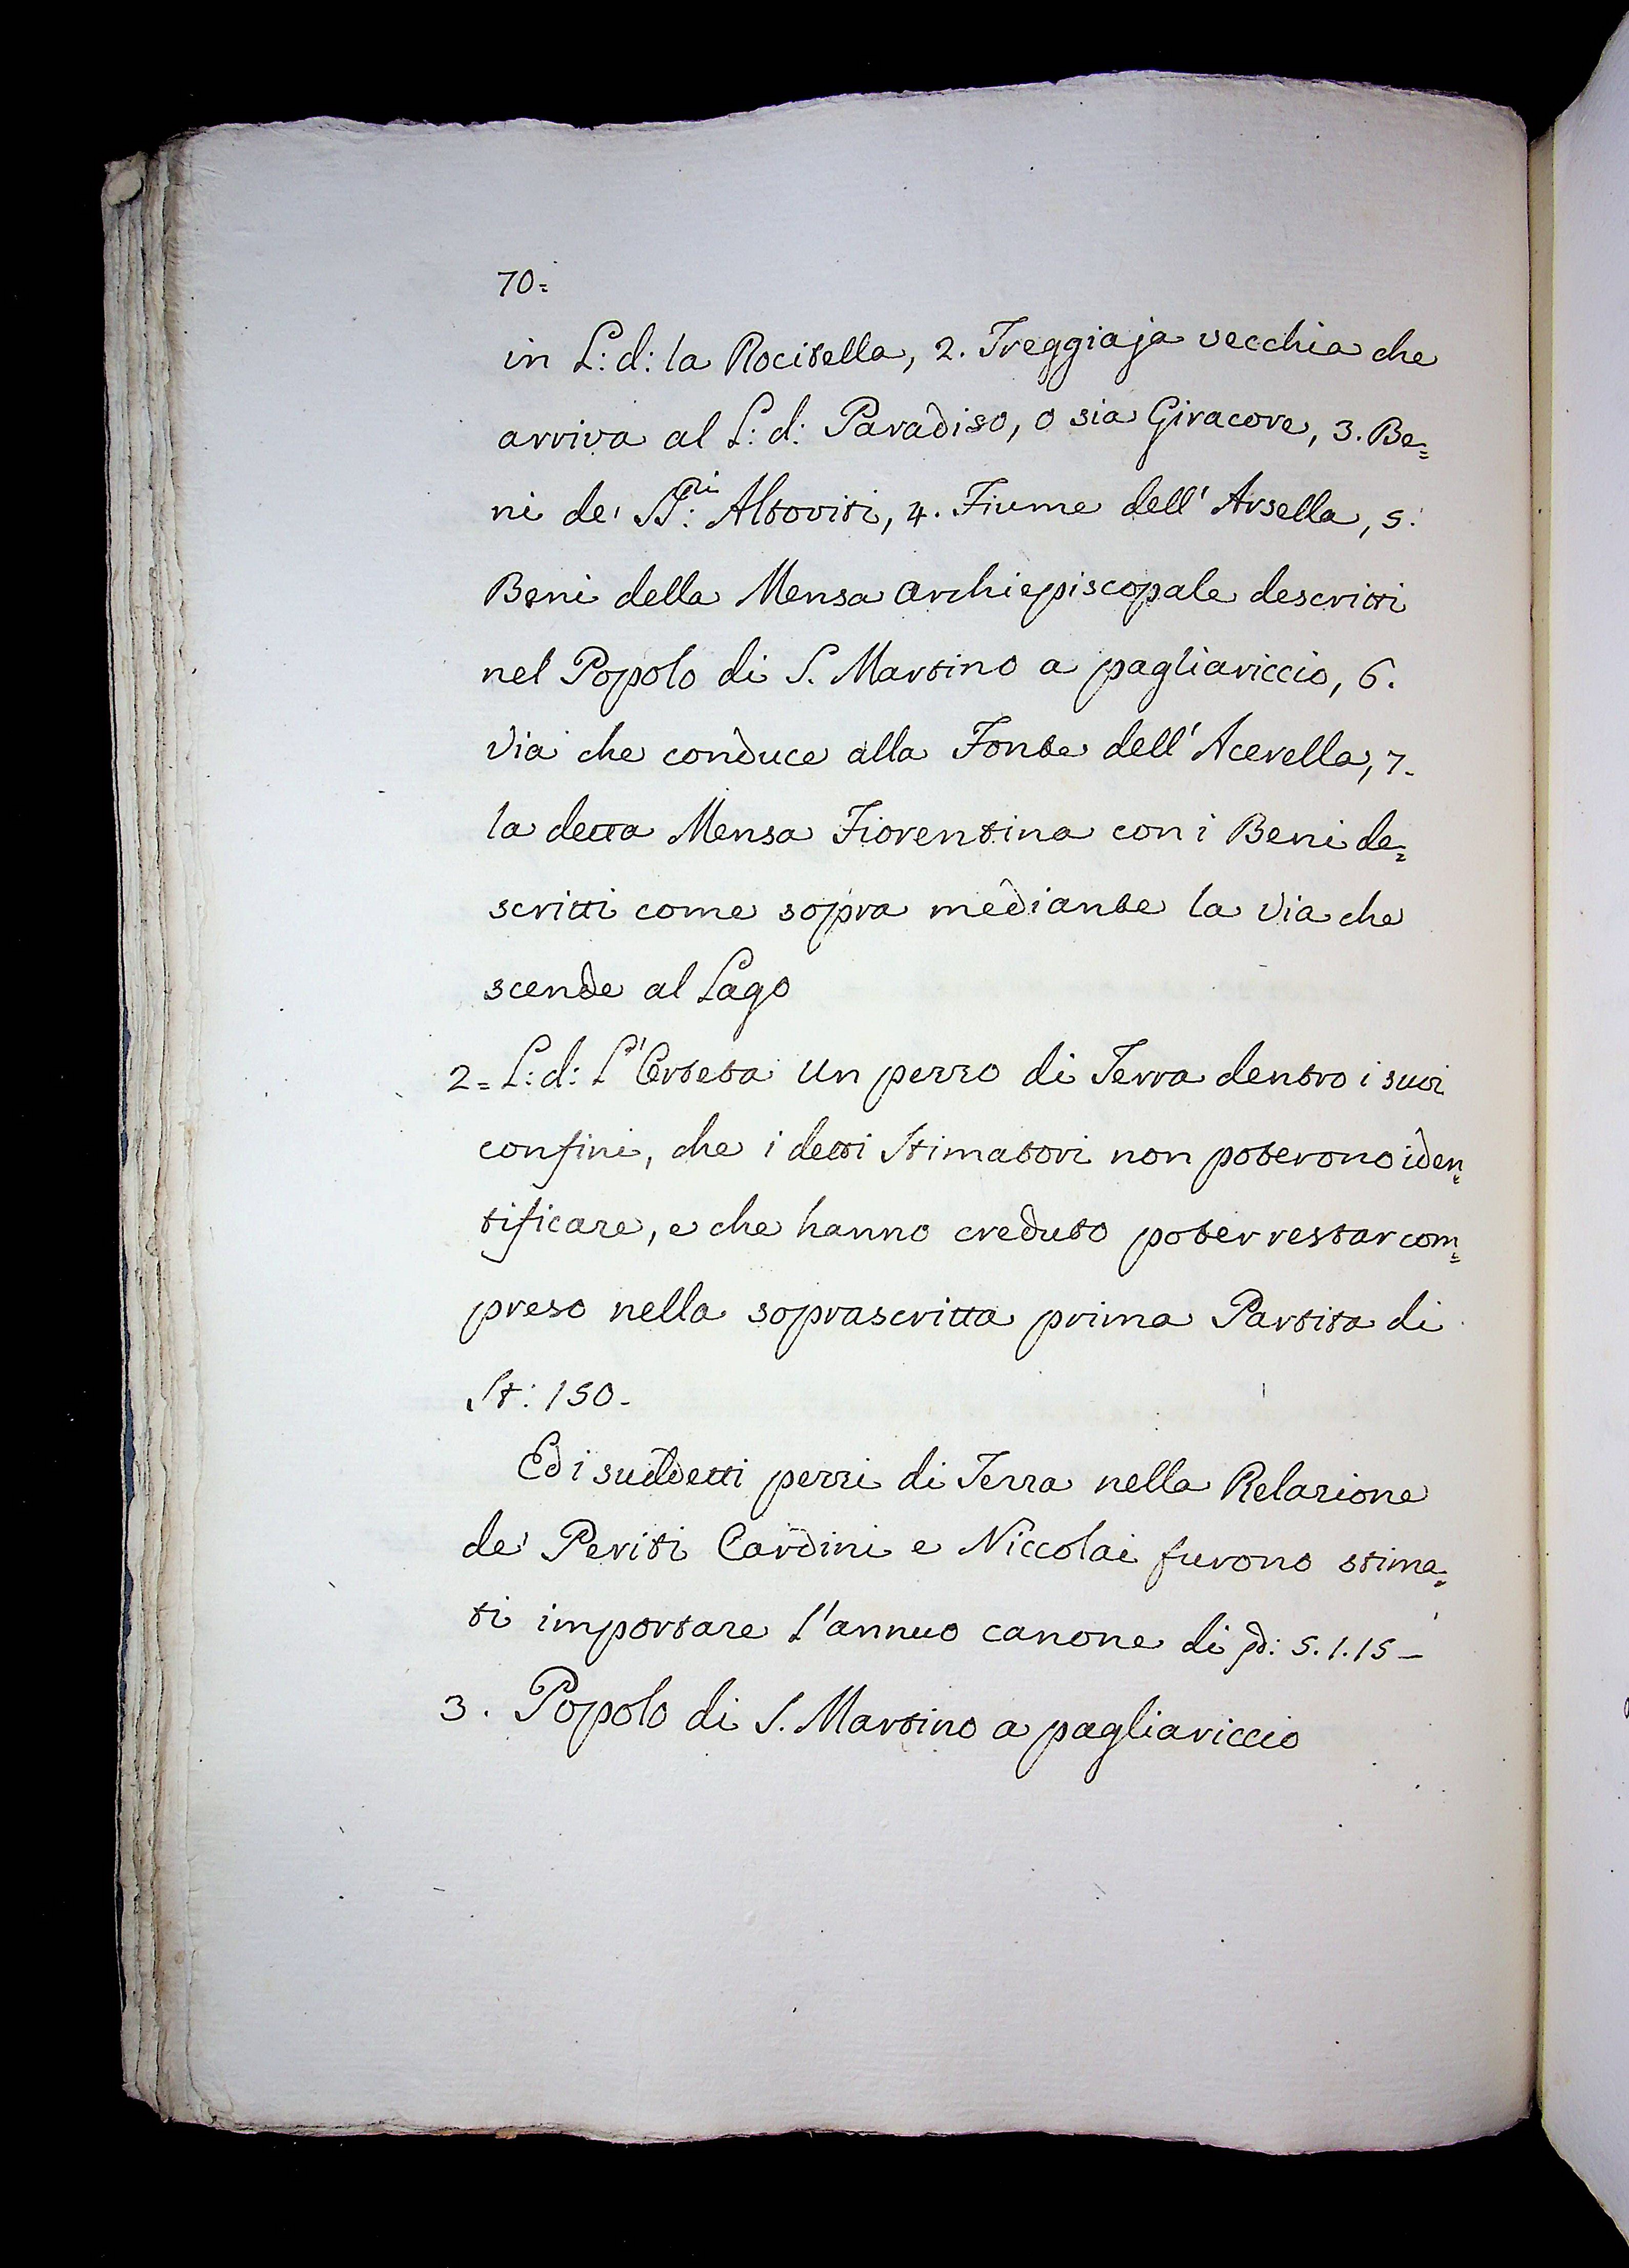 70=
in L: d: la Rocitella, 2. Treggiaja vecchia che
arriva al L: d: Paradiso, o sia Giracore, 3. Be=
ni de' SS:ri Altoviti, 4. Fiume dell' Arsella, 5.
Beni della Mensa Archiepiscopale descritti
nel Popolo di S. Martino a pagliariccio, 6.
Via che conduce alla Fonte dell' Acerella, 7.
la detta Mensa Fiorentina con i Beni de=
scritti come sopra mediante la Via che
scende al Lago
2= L: d: L'Erteta Un pezzo di Terra dentro i suoi
confini, che i detti Stimatori non poterono iden=
tificare, e che hanno creduto poter restar com=
preso nella soprascritta prima Partita di
St: 150.
Ed i suddetti pezzi di Terra nella Relazione
de' Periti Cardini e Niccolai furono stima=
ti importare l'annuo canone di 5. 1. 15 —
3. Popolo di S. Martino a pagliariccio